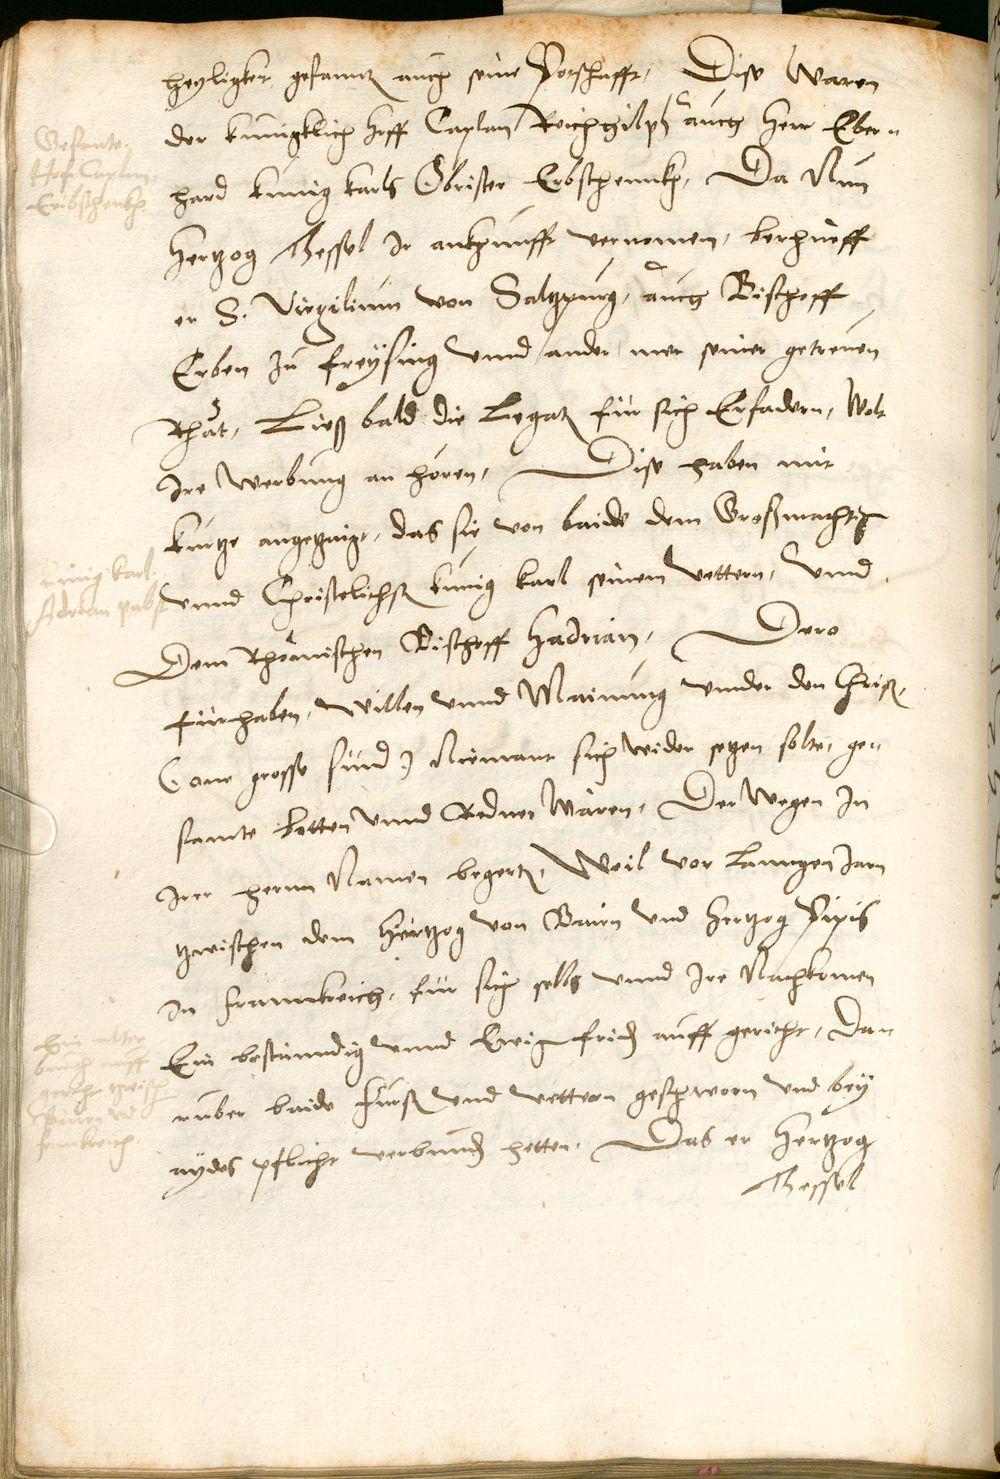 heyligkeit gesanntz auch seine Potschafft, Dise Waren
der kunigklich hoff Caplan Reichgilph auch Herr Eber=
hard kunig karls Obrister Erbschennckh, Da Nun
Hertzog Thessel Ir ankhunfft vernomen, berhueff
er S. Virgilium von Saltzpurg, auch Bischoff
Erben Zu freysing vnnd ander mer seiner getreuen
Rhät, Ließ bald die Legatz für sich Erfadern, Wolt
Ire Werbung an hören, Dise haben mit
kurtze angetzaigt, das sie von baide dem Großmachtig
vnnd Christelichst kunig karl seinem vettern, vnnd
Dem Rhömischen Bischoff Hadrian, Dero
fürhaben, willen vnnd Mainung vnnder den Christ,
(one grosse sünd) Niemant sich wider setzen solte, ge=
sannte Botten vnnd Redner Waren, Der Wegen In
Irer herrn Namen begertz, Weil vor Lanngen Jarn
tzwischen dem Hertzog von Bairn vnd Hertzog Pipis
In Frannkreich, für sich selbs vnnd Ire Nachkomen
Ein bestenndig vnnd Ewig frid auff gericht, Dar
rüber baide Fürst vnd vettern geschworn vnd bey
aydes pflicht verbund hetten, Das er Hertzog
Thessel
Gesante.
Hof Caplan,
Erbschenkh
kunig karl.
Adrian pabst
Ein alter
auff
gericht tzwisch
Bairen vnd
franckreich